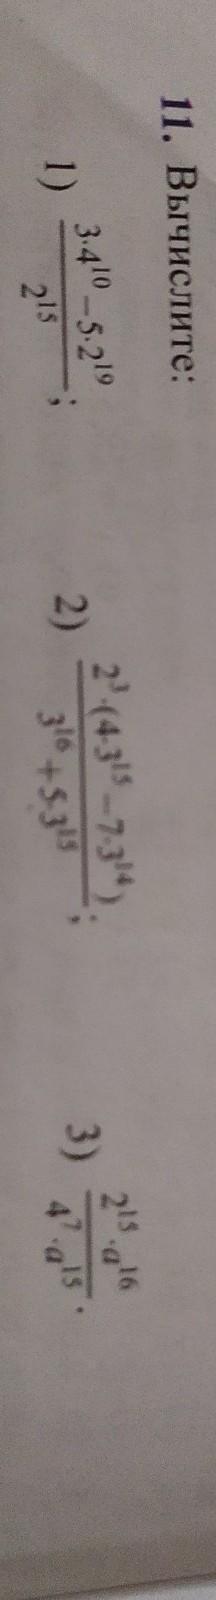 11. Вычислите:
1) (3·4^10 − 5·2^19)/2^15; 2) (2^3·(4·3^15 − 7·3^14))/(3^16 + 5·3^15); 3) (2^15·a^16)/(4^7·a^15).